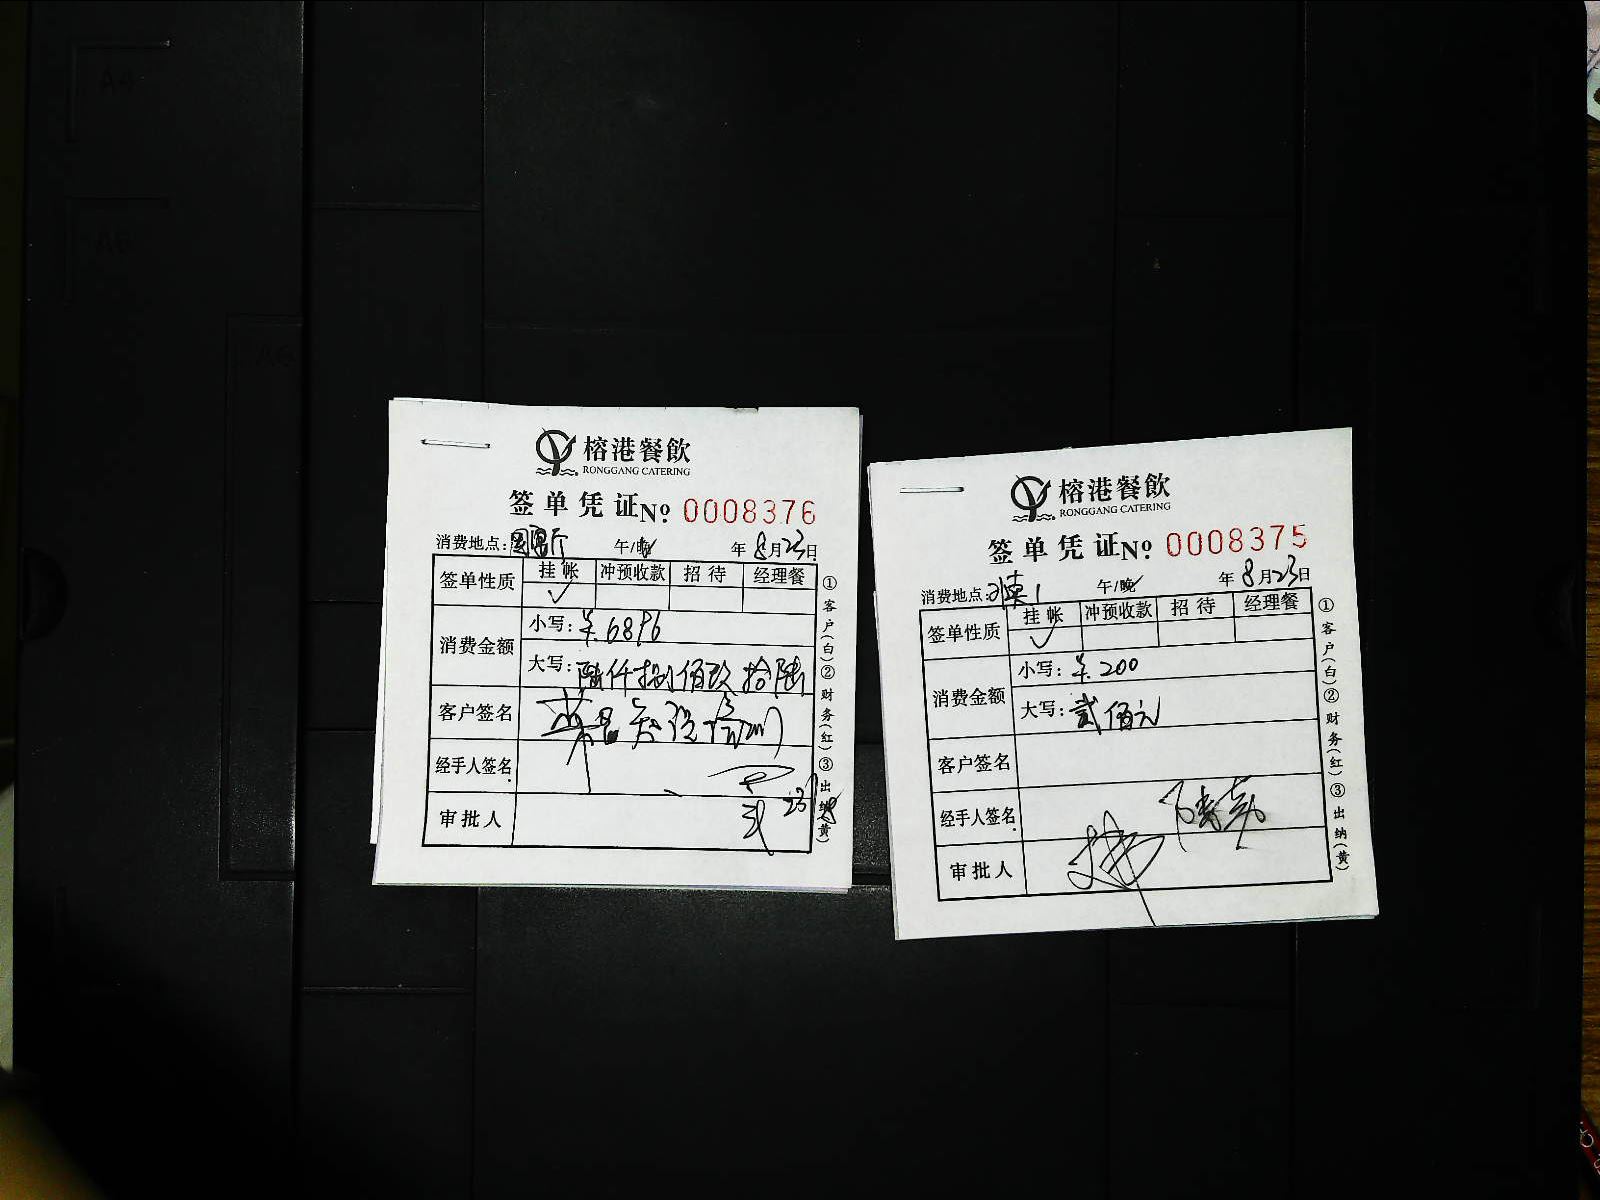 榕港餐飲
RONGGANG CATERING
签单凭证№ 0008376
消费地点: 午/晚 年8月23日
签单性质 挂帐 冲预收款 招待 经理餐
✓
消费金额 小写:¥6896
大写:陆仟捌佰玖拾陆
客户签名
经手人签名
审批人
①客户(白)②财务(红)③出纳(黄)
榕港餐飲
RONGGANG CATERING
签单凭证№ 0008375
消费地点: 午/晚 年8月23日
签单性质 挂帐 冲预收款 招待 经理餐
✓
消费金额 小写:¥200
大写:贰佰元
客户签名
经手人签名
审批人
①客户(白)②财务(红)③出纳(黄)